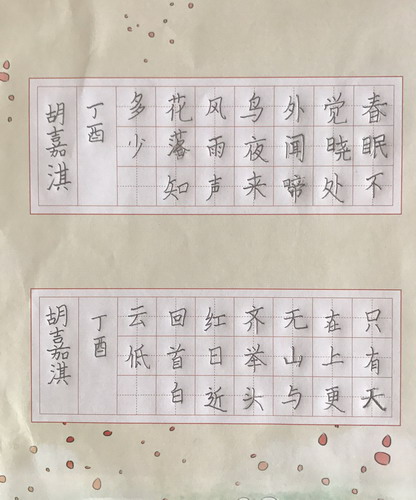 春眠不
觉晓处
外闻啼
鸟夜来
风雨声
花落知
多少
丁酉
胡嘉淇
只有天
在上更
无山与
齐举头
红日近
回首白
云低
丁酉
胡嘉淇